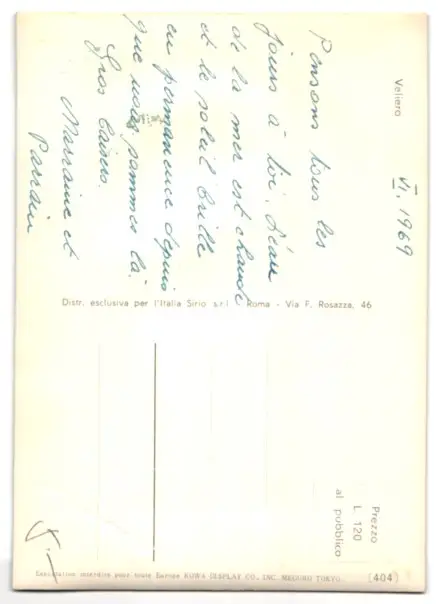 Veliero
VI. 1969
Pensons tous les
jours à toi. L'eau
de la mer est chaude
et le soleil brille
en permanence depuis
que nous sommes là.
Gros baisers.
Marraine et
Parrain
Distr. esclusiva per l'Italia Sirio s.r.l. Roma - Via F. Rosazza, 46
Prezzo
L. 120
al pubblico
Exportation interdite pour toute Europe KOWA DISPLAY CO., INC. MEGURO TOKYO.
(404)